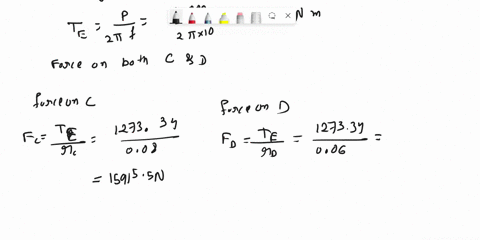 T_E = P / 2πf = / 2π×10 N m
Force on both C & D
force on C
F_C = T_E / r_C = 1273.34 / 0.08
= 15915.5N
force on D
F_D = T_E / r_D = 1273.34 / 0.06 =